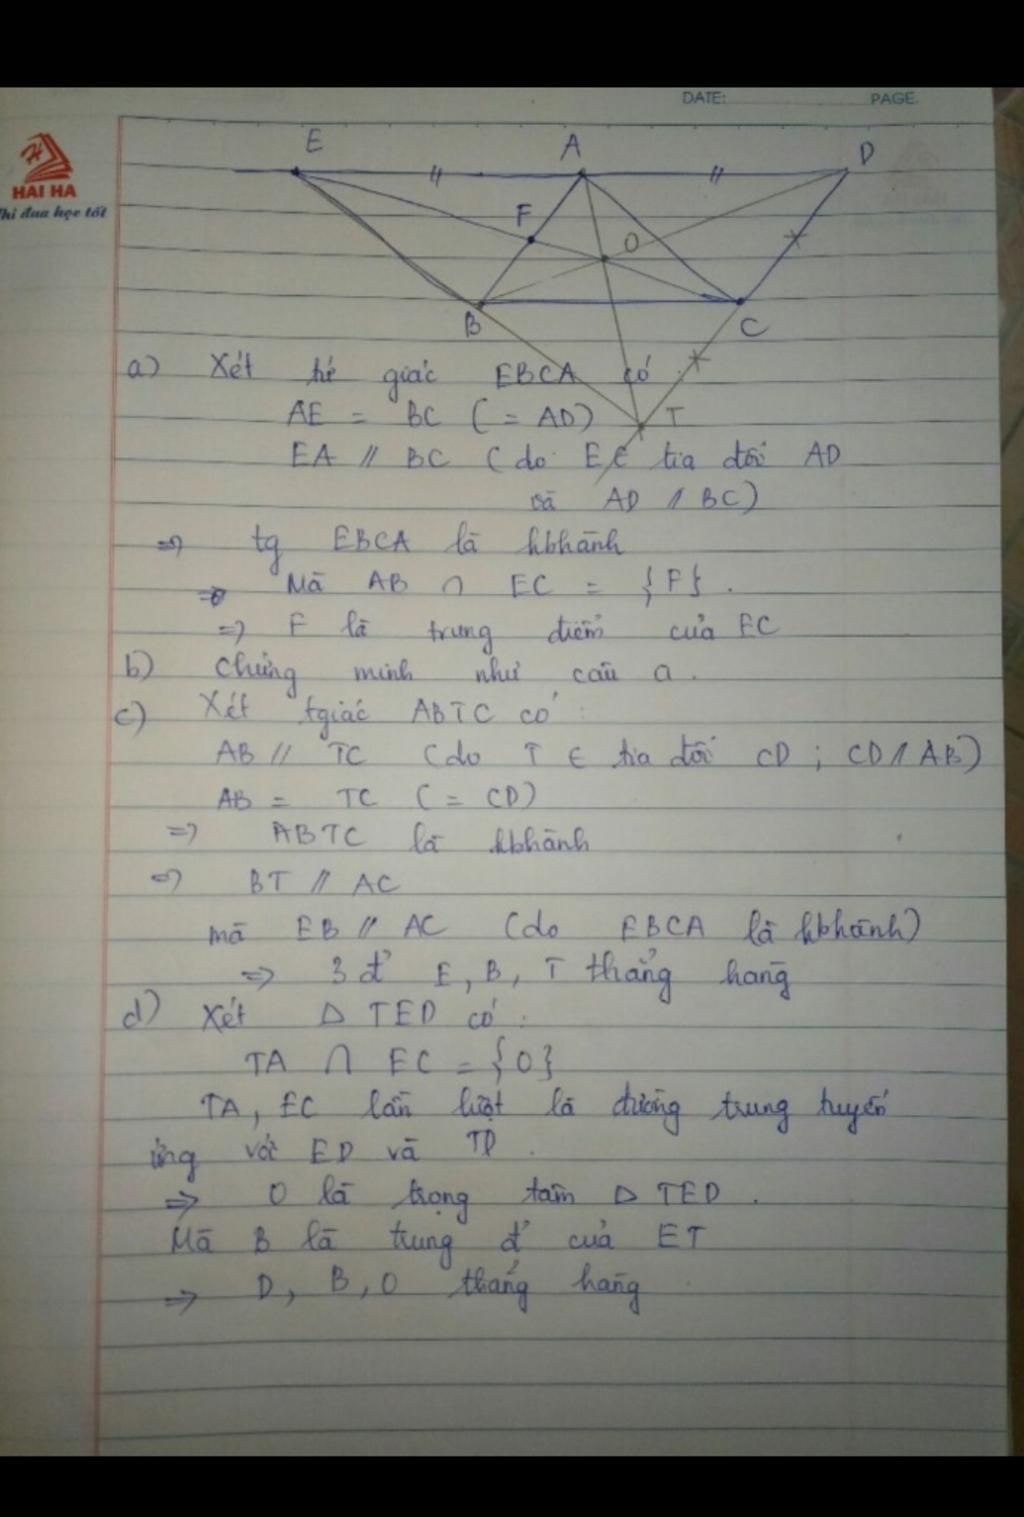 DATE: PAGE.
HAI HA
Thi đua học tốt
E A D
F O
B C
T
a) Xét tứ giác EBCA có :
AE = BC (= AD)
EA // BC (do E ∈ tia đối AD
và AD // BC)
=> tg EBCA là hbhành
=> Mà AB ∩ EC = {F}.
=> F là trung điểm của EC
b) Chứng minh như câu a.
c) Xét tgiác ABTC có :
AB // TC (do T ∈ tia đối CD ; CD // AB)
AB = TC (= CD)
=> ABTC là hbhành
=> BT // AC
mà EB // AC (do EBCA là hbhành)
=> 3 đ' E, B, T thẳng hàng
d) Xét Δ TED có :
TA ∩ EC = {O}
TA, EC lần lượt là đường trung tuyến
ứng với ED và TD.
=> O là trọng tâm Δ TED.
Mà B là trung đ' của ET
=> D, B, O thẳng hàng